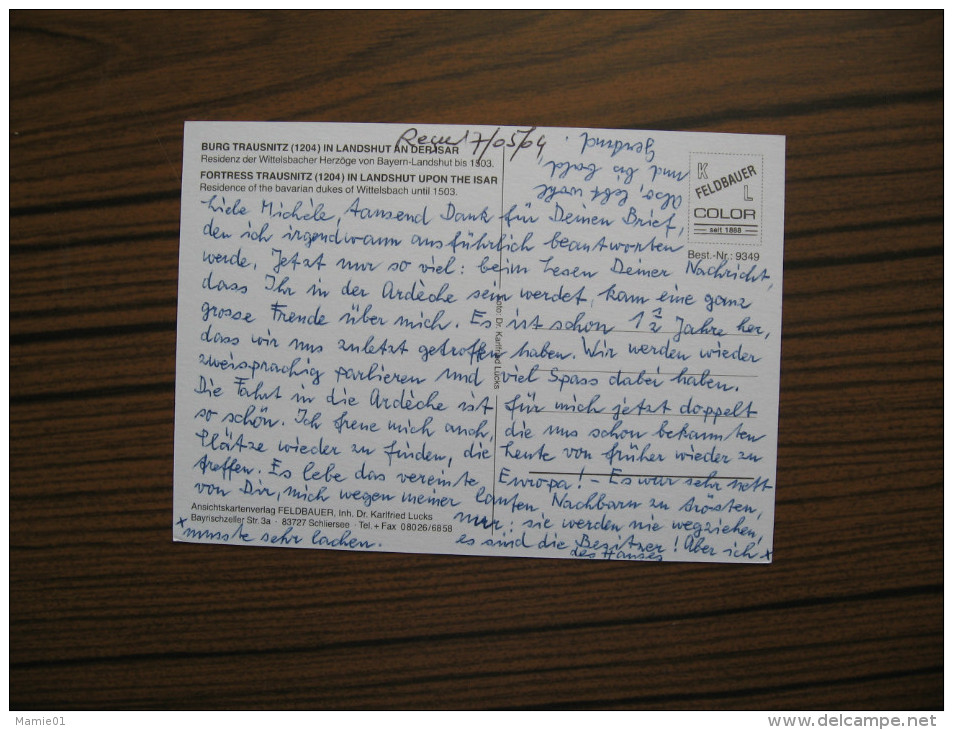 Recu 17/05/04
BURG TRAUSNITZ (1204) IN LANDSHUT AN DER ISAR
Residenz der Wittelsbacher Herzöge von Bayern-Landshut bis 1503.
FORTRESS TRAUSNITZ (1204) IN LANDSHUT UPON THE ISAR
Residence of the bavarian dukes of Wittelsbach until 1503.
K
FELDBAUER
L
COLOR
seit 1888
Best.-Nr.: 9349
Liebe Michèle, tausend Dank für Deinen Brief,
den ich irgendwann ausführlich beantworten
werde. Jetzt nur so viel: beim Lesen Deiner Nachricht,
dass Ihr in der Ardèche sein werdet, kam eine ganz
grosse Freude über mich. Es ist schon 1 1/2 Jahre her,
dass wir uns zuletzt getroffen haben. Wir werden wieder
zweisprachig parlieren und viel Spass dabei haben.
Die Fahrt in die Ardèche ist für mich jetzt doppelt
so schön. Ich freue mich auch, die uns schon bekannten
Plätze wieder zu finden, die Leute von früher wieder zu
treffen. Es lebe das vereinte Europa! - Es war sehr nett
von Dir, mich wegen meiner lauten Nachbarn zu trösten,
nur: sie werden nie wegziehen,
es sind die Besitzer! Aber ich x
des Hauses
x musste sehr lachen.
Also, lebt wohl
und bis bald
Gertrud.
Foto: Dr. Karlfried Lucks
Ansichtskartenverlag FELDBAUER, Inh. Dr. Karlfried Lucks
Bayrischzeller Str.3a · 83727 Schliersee · Tel. + Fax 08026/6858
Mamie01
www.delcampe.net